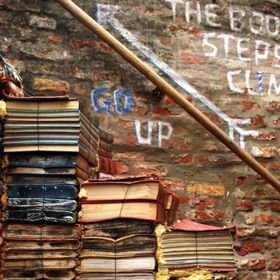 THE BOO
STEPS
CLIM
GO
UP